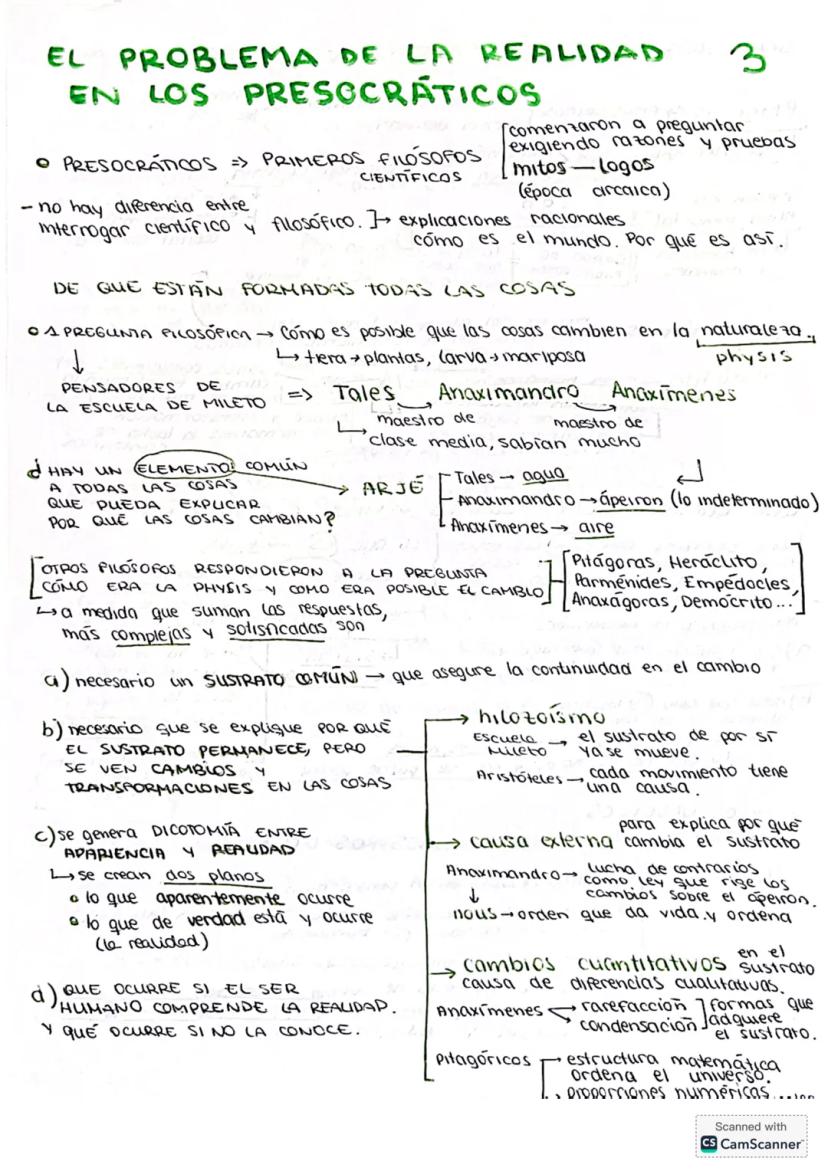 EL PROBLEMA DE LA REALIDAD 3
EN LOS PRESOCRÁTICOS
PRESOCRÁTICOS => PRIMEROS FILÓSOFOS
CIENTÍFICOS
comenzaron a preguntar
exigiendo razones y pruebas
mitos — logos
(época arcaica)
- no hay diferencia entre
interrogar científico y filosófico. ]→ explicaciones racionales
cómo es el mundo. Por qué es así.
DE QUE ESTÁN FORMADAS TODAS LAS COSAS
1 PREGUNTA FILOSÓFICA → Cómo es posible que las cosas cambien en la naturaleza.
↳ tiera → plantas, larva → mariposa
physis
PENSADORES DE
LA ESCUELA DE MILETO => Tales Anaximandro Anaxímenes
maestro de maestro de
clase media, sabían mucho
¿HAY UN ELEMENTO COMÚN
A TODAS LAS COSAS
QUE PUEDA EXPLICAR
POR QUÉ LAS COSAS CAMBIAN?
→ ARJÉ
Tales → agua
Anaximandro → ápeiron (lo indeterminado)
Anaxímenes → aire
OTROS FILÓSOFOS RESPONDIERON A LA PREGUNTA
CÓMO ERA LA PHYSIS Y COMO ERA POSIBLE EL CAMBIO
Pitágoras, Heráclito,
Parménides, Empédocles,
Anaxágoras, Demócrito...
↳ a medida que suman las respuestas,
más complejas y sofisticadas son
a) necesario un SUSTRATO COMÚN → que asegure la continuidad en el cambio
b) necesario que se explique POR QUÉ
EL SUSTRATO PERMANECE, PERO
SE VEN CAMBIOS Y
TRANSFORMACIONES EN LAS COSAS
→ hilozoísmo
Escuela Mileto → el sustrato de por sí
ya se mueve.
Aristóteles → cada movimiento tiene
una causa.
c) se genera DICOTOMÍA ENTRE
APARIENCIA Y REALIDAD
↳ se crean dos planos
lo que aparentemente ocurre
lo que de verdad está y ocurre
(la realidad)
para explica por qué
→ causa externa cambia el sustrato
Anaximandro → lucha de contrarios
como ley que rige los
cambios sobre el ápeiron.
↓
nous → orden que da vida y ordena
d) QUE OCURRE SI EL SER
HUMANO COMPRENDE LA REALIDAD.
Y QUÉ OCURRE SI NO LA CONOCE.
→ cambios cuantitativos en el sustrato
causa de diferencias cualitativas.
Anaxímenes rarefacción
condensación
formas que
adquiere
el sustrato.
Pitagóricos estructura matemática
ordena el universo.
proporciones numéricas
Scanned with
CS CamScanner